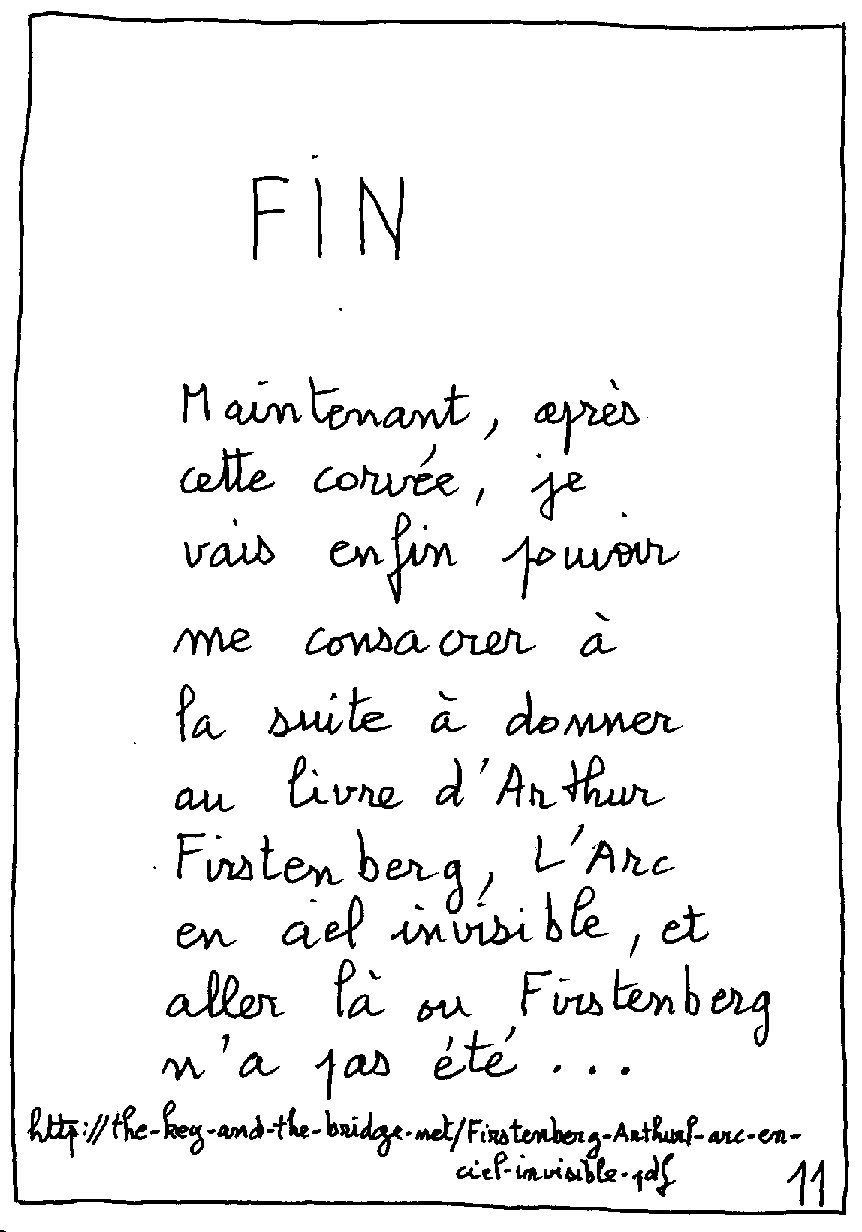 FiN
Maintenant, après
cette corvée, je
vais enfin pouvoir
me consacrer à
la suite à donner
au livre d'Arthur
Firstenberg, L'Arc
en ciel invisible, et
aller là ou Firstenberg
n'a pas été...
http://the-key-and-the-bridge.net/Firstenberg-Arthurl-arc-en-
ciel-invisible.pdf
11